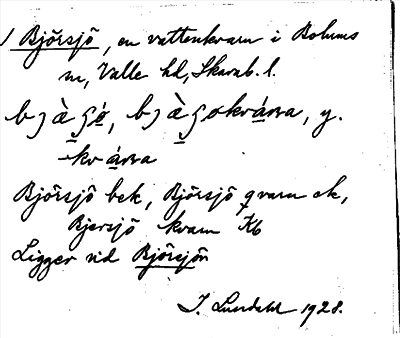 1 Björsjö, en vattenkvarn i Bolums
sn, Valle hd, Skarab. l.
bjàʂó, bjàʂokvárṇa, y.
-kvárṇa
Björsjö bek, Björsjö qvarn ek,
Bjersjö kvarn Kb
Ligger vid Björsjön
J. Lundahl 1928.